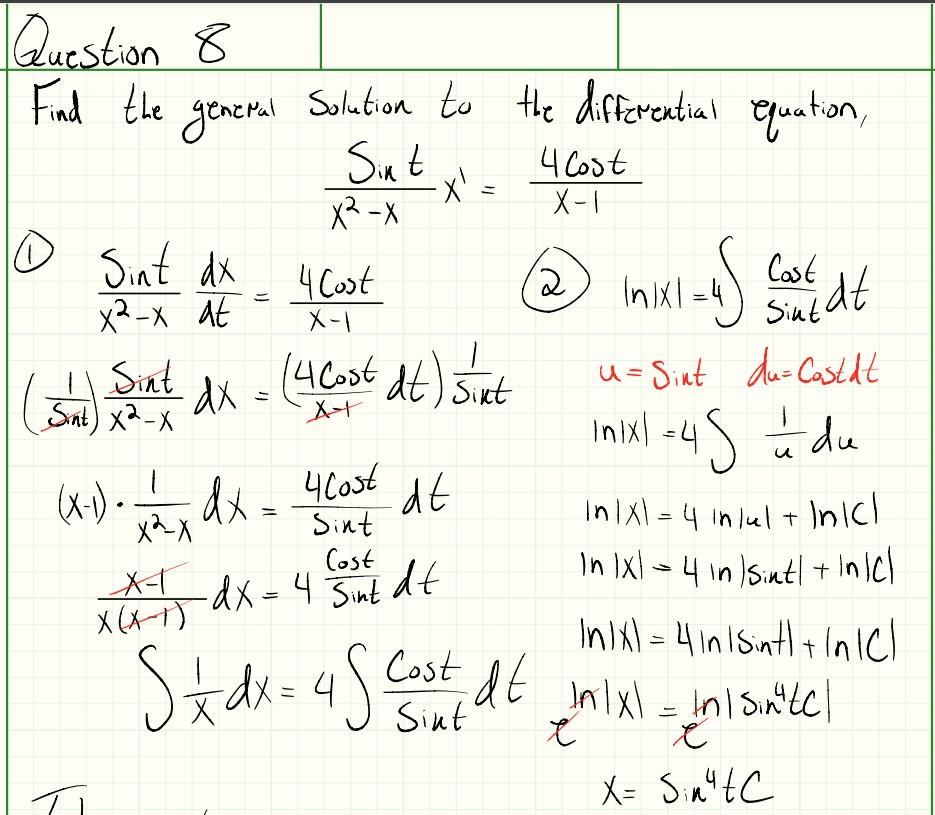 Question 8
Find the general Solution to the differential equation,
Sin t / (x² - x) x' = 4 Cos t / (x - 1)
① Sin t / (x² - x) dx/dt = 4 Cos t / (x - 1)
(1 / Sin t) Sin t / (x² - x) dx = (4 Cos t / (x - 1) dt) 1 / Sin t
(x - 1) · 1 / (x² - x) dx = 4 Cos t / Sin t dt
(x - 1) / (x(x - 1)) dx = 4 Cos t / Sin t dt
∫ 1/x dx = 4 ∫ Cos t / Sin t dt
② ln|x| = 4 ∫ Cos t / Sin t dt
u = Sin t du = Cos t dt
ln|x| = 4 ∫ 1/u du
ln|x| = 4 ln|u| + ln|C|
ln|x| = 4 ln|Sin t| + ln|C|
ln|x| = 4 ln|Sin t| + ln|C|
e^ln|x| = e^ln|Sin⁴tC|
x = Sin⁴tC